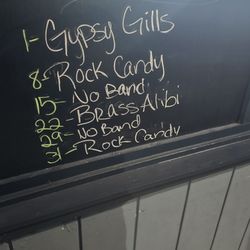 1- Gypsy Gills
8- Rock Candy
15- No Band
22- Brass Alibi
29- No Band
31- Rock Candy